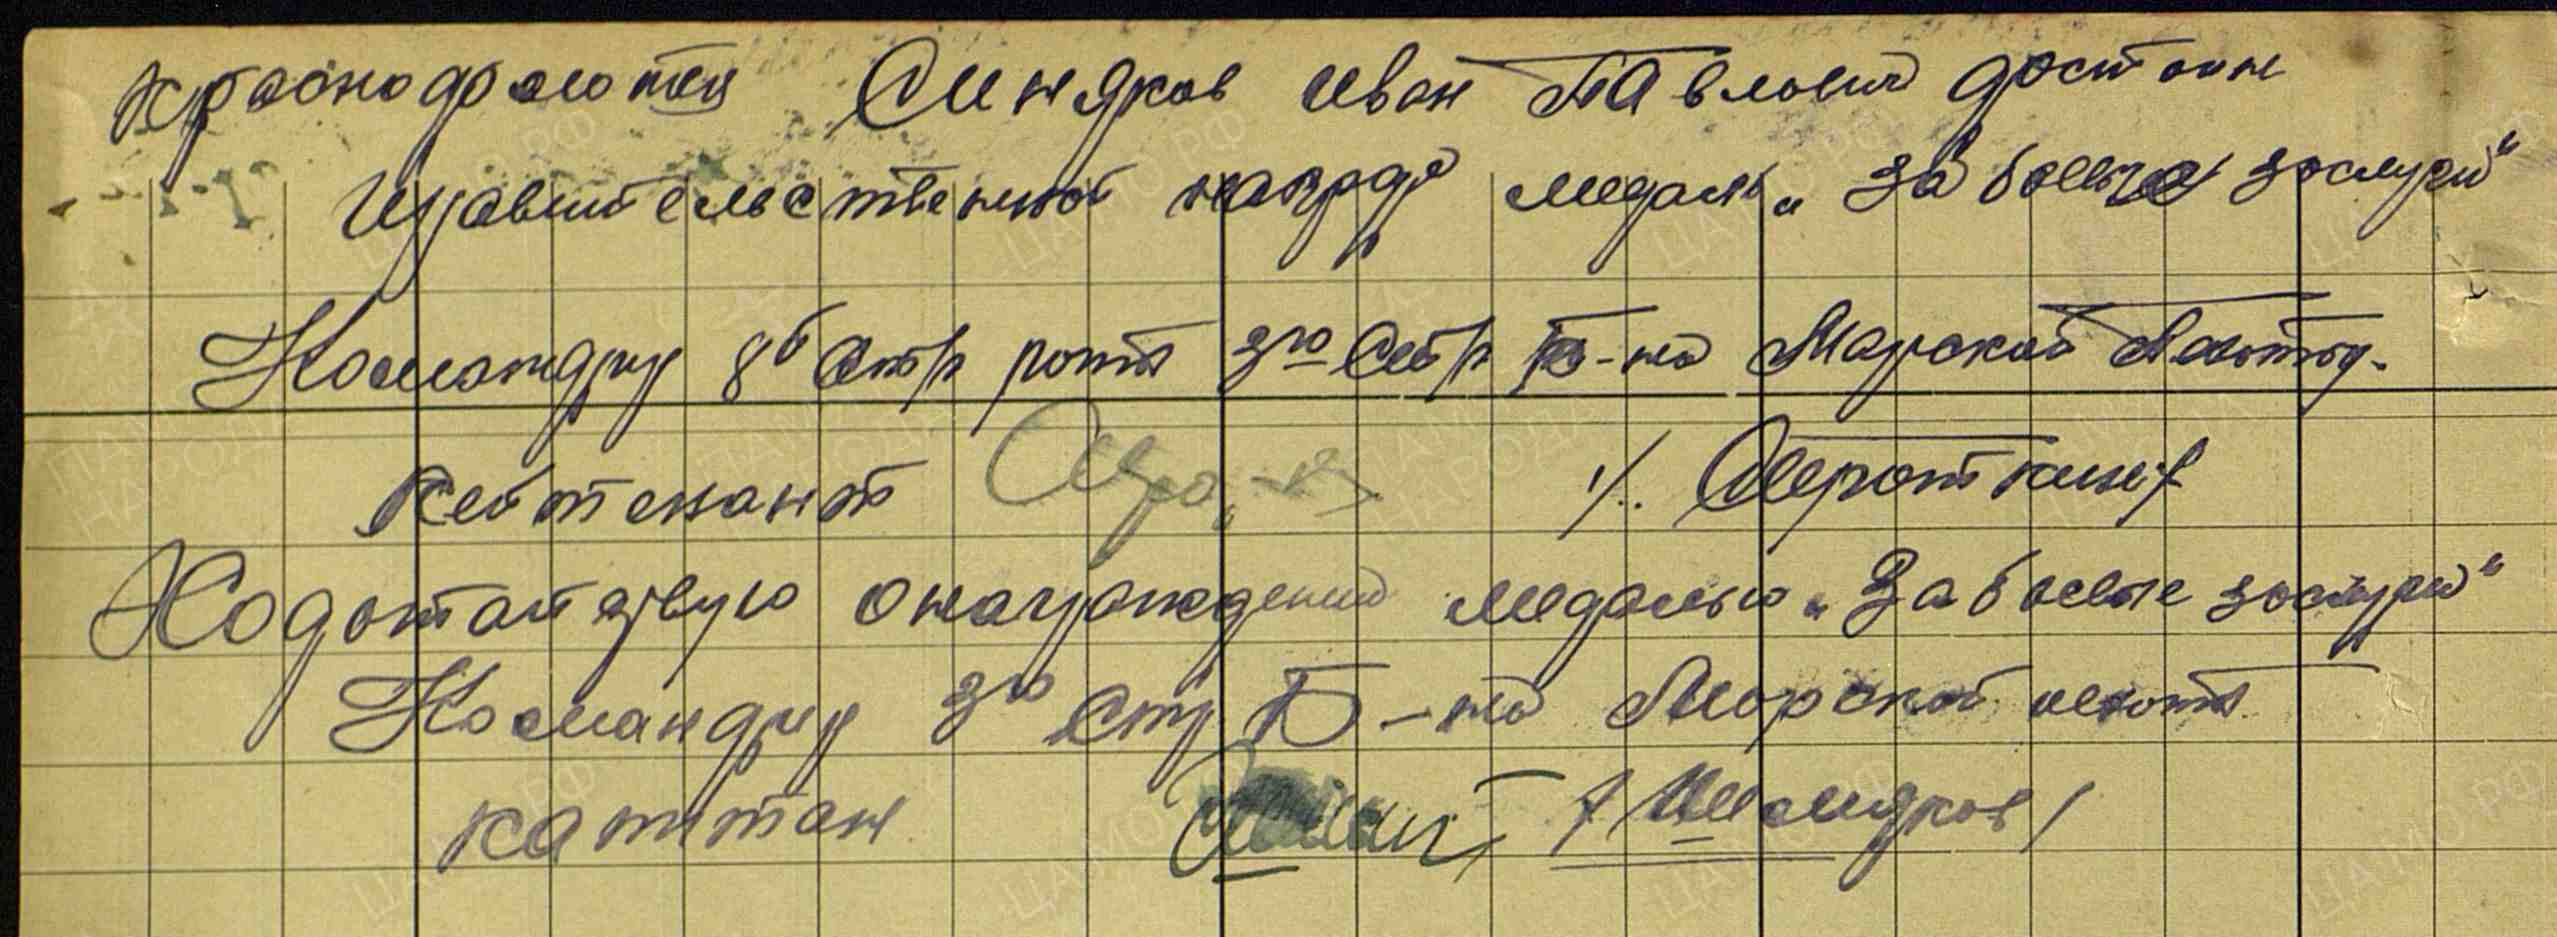 Краснофлотец Синяков Иван Павлович достоин
Правительственной награде медаль „За боевые заслуги"
Командир 8й Стр роты 3го Стр Б-на Морской Пехоты
Лейтенант /. Сироткин /
Ходотайствую о награждении медалью „За боевые заслуги"
Командир 3го Стр. Б-на Морской пехоты
капитан / Шемяков /